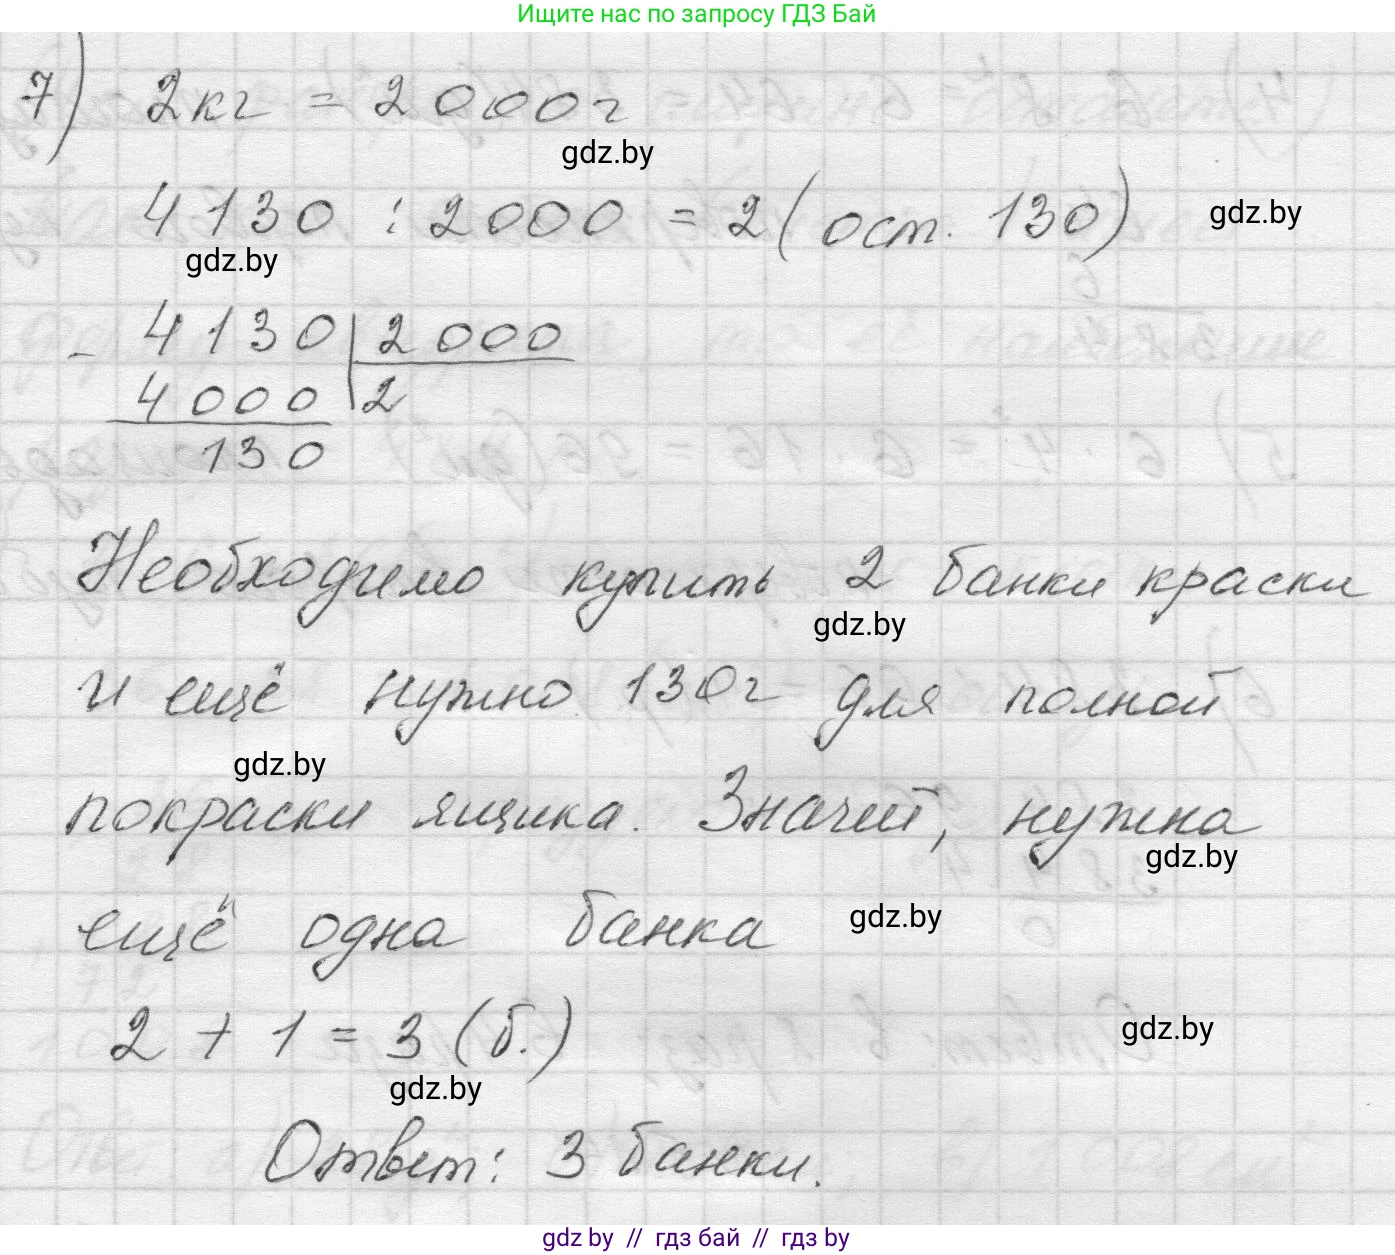 Ищите нас по запросу ГДЗ Бай
7) 2кг = 2000г
gdz.by
4130 : 2000 = 2 (ост. 130)
gdz.by
gdz.by
- 4130 | 2000
4000 | 2
130
Необходимо купить 2 банки краски
gdz.by
и ещё нужно 130г для полной
gdz.by
покраски ящика. Значит, нужна
gdz.by
ещё одна банка
gdz.by
2 + 1 = 3 (б.)
gdz.by
gdz.by
Ответ: 3 банки.
gdz.by // гдз бай // гдз by